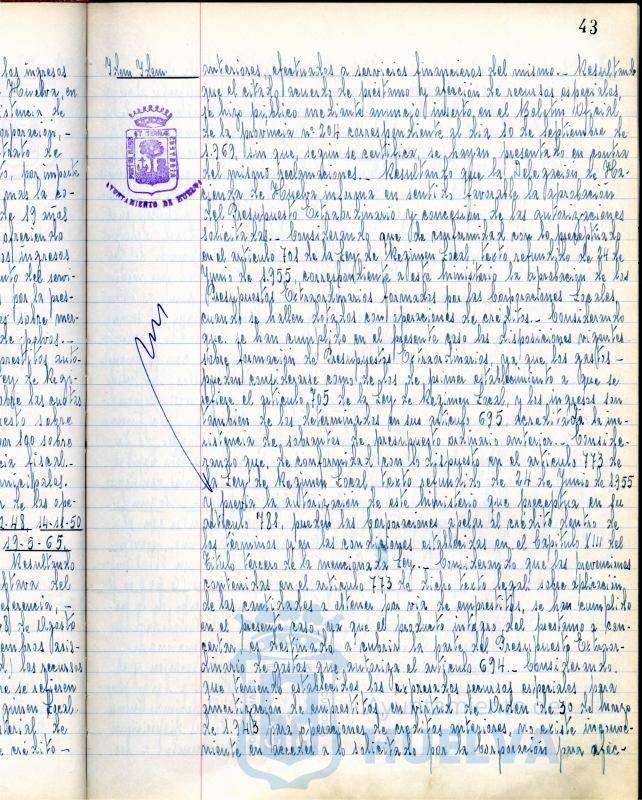 43
los ingresos
Huelva, en
istencia de
orporación,-
trato de
to, por importe
de 19 años
ofreciendo
os ingresos
nto del servi-
por la pres-
sobre mer-
presitos auto-
Ley de Regi-
uesto sobre
sobre
cia fiscal.-
municipales.
de las ope-
2-48, 14-11-50
19-5-65.
Resultando
octava del
referencia, -
8) de Agosto
los recursos
se refieren
gimen Local
de
e crédito -
Idem Idem
AYUNTAMIENTO DE HUELVA
anteriores, efectuados a servicios financieros del mismo.- Resultando
que el citado acuerdo de préstamo y afección de recursos especiales,
se hizo público mediante anuncio inserto en el Boletín Oficial
de la provincia nº 204 correspondiente al día 10 de septiembre de
1.969, sin que, según se certifica, se hayan presentado en contra
del mismo reclamaciones.- Resultando que la Delegación de Ha-
cienda de Huelva informa en sentido favorable la aprobación
del Presupuesto Extraordinario y concesión de las autorizaciones
solicitadas.- Considerando que de conformidad con lo preceptuado
en el artículo 701 de la Ley de Régimen Local, texto refundido de 24 de
Junio de 1955, corresponde a este ministerio la aprobación de los
Presupuestos Extraordinarios formados por las Corporaciones Locales,
cuando se hallen dotados con operaciones de créditos.- Considerando
que se han cumplido en el presente caso las disposiciones vigentes
sobre formación de Presupuestos Extraordinarios, ya que los gastos -
pueden considerarse como de los de primer establecimiento a que se
refiere el artículo 705 de la Ley de Régimen Local, y los ingresos son
también de los determinados en su artículo 695, acreditada la ine-
xistencia de sobrantes de presupuesto ordinario anterior.- Conside-
rando que, de conformidad con lo dispuesto en el artículo 773 de
la Ley de Régimen Local, texto refundido de 24 de Junio de 1955
y previa la autorización de este ministerio que preceptua en su
artículo 781, pueden las Corporaciones apelar al crédito dentro de
los términos y en las condiciones establecidas en el Capítulo XIII del
Título tercero de la mencionada Ley.- Considerando que las prevenciones
contenidas en el artículo 773 de dicho texto legal sobre aplicación
de las cantidades a obtener por vía de empréstitos, se han cumplido
en el presente caso, ya que el producto íntegro del préstamo a con-
certar, es destinado a cubrir la parte del Presupuesto Extraor-
dinario de gastos que autoriza el artículo 694.- Considerando
que teniendo establecidos los expresados recursos especiales para
amortización de empréstitos en virtud de Orden de 30 de marzo
de 1943 para operaciones de créditos anteriores, no existe inconve-
niente en acceder a lo solicitado por la Corporación para afec-
Ayuntamiento de
HUELVA